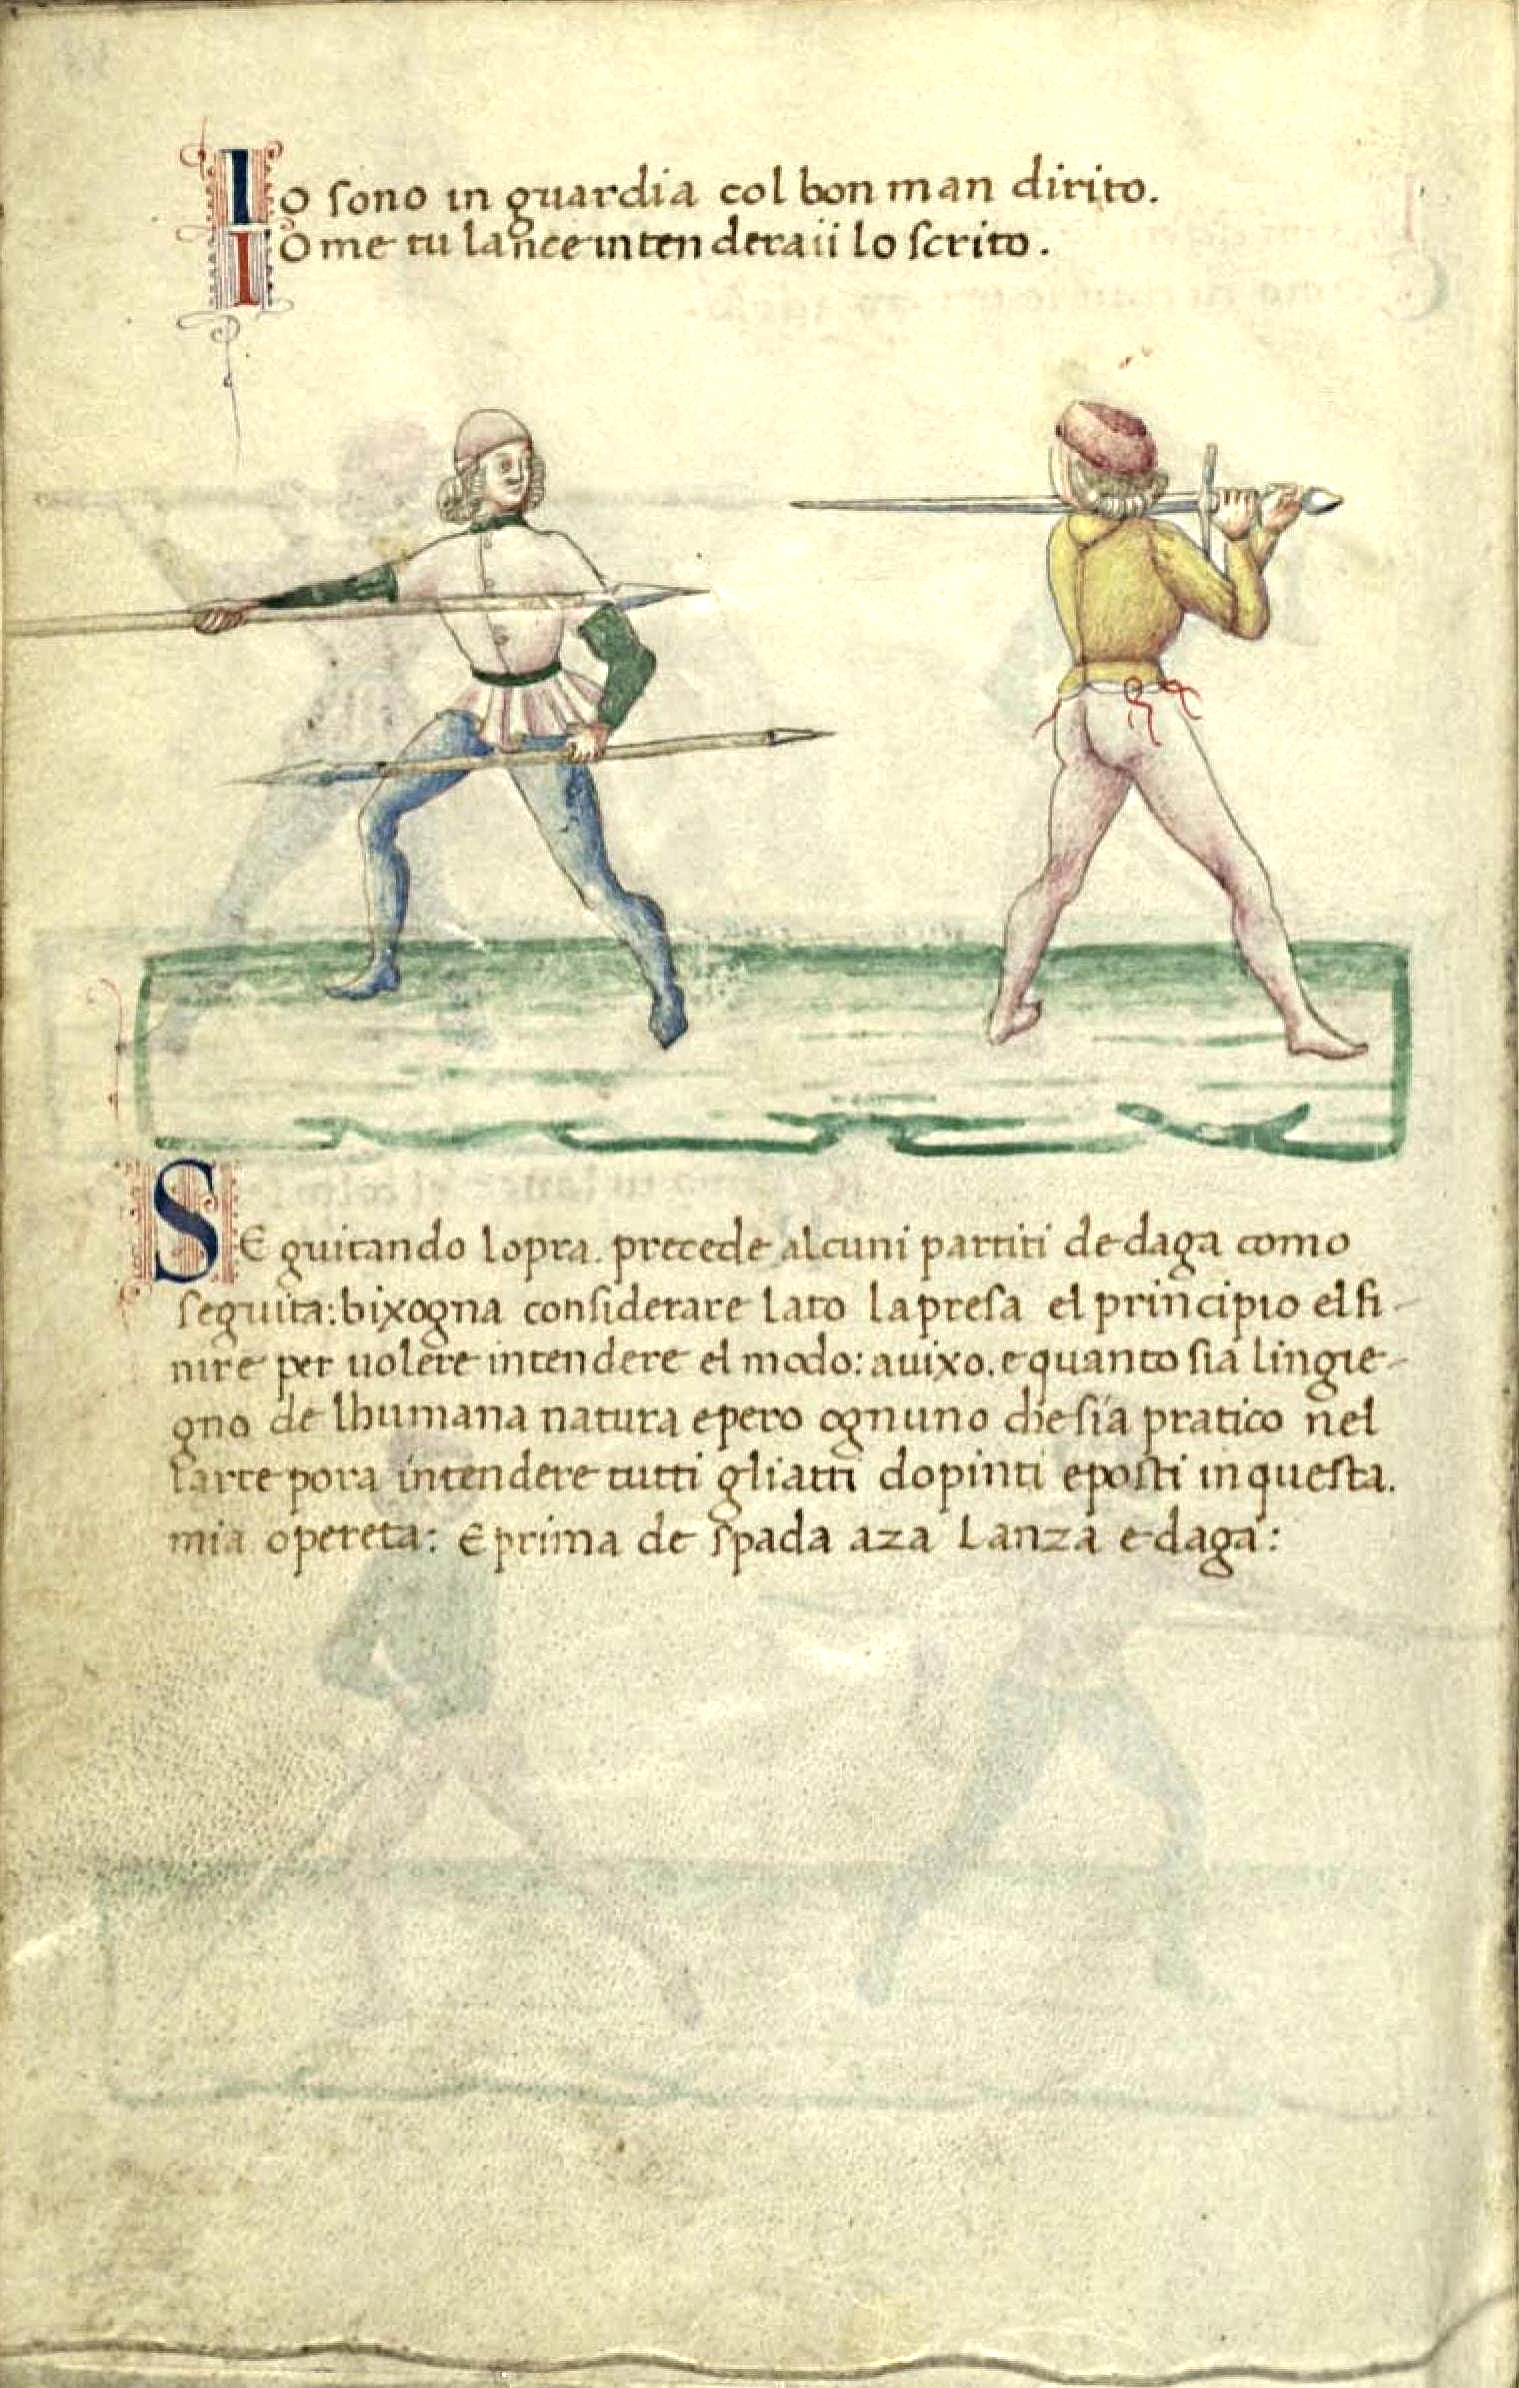 Io sono in guardia col bon man dirito.
Iome tu lance intenderaii lo scrito.
SE guitando lopra. precede alcuni partiti de daga como
seguita: bixogna considerare lato la presa el principio el fi-
nire per uolere intendere el modo: auixo. e quanto sia lingie-
gno de lhumana natura e pero ognuno che sia pratico nel
larte pora intendere tutti gli atti dopinti e posti in questa.
mia opereta: E prima de spada aza Lanza e daga: